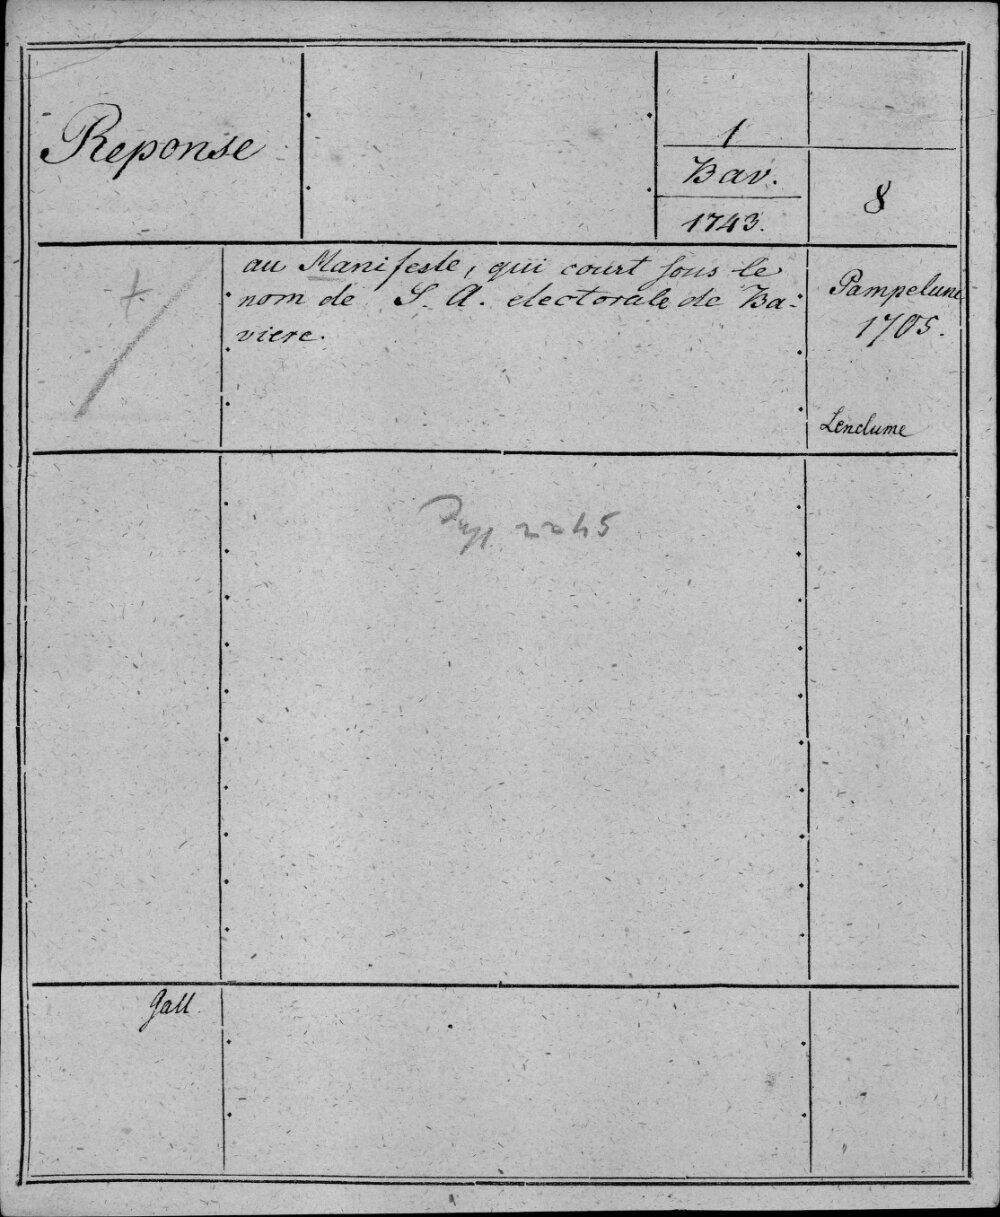 Reponse
1
Bav.
1743.
8
au Manifeste, qui court sous le
nom de S. A. electorale de Ba-
viere.
Pampelune
1705.
Lenclume
2245
Gall.